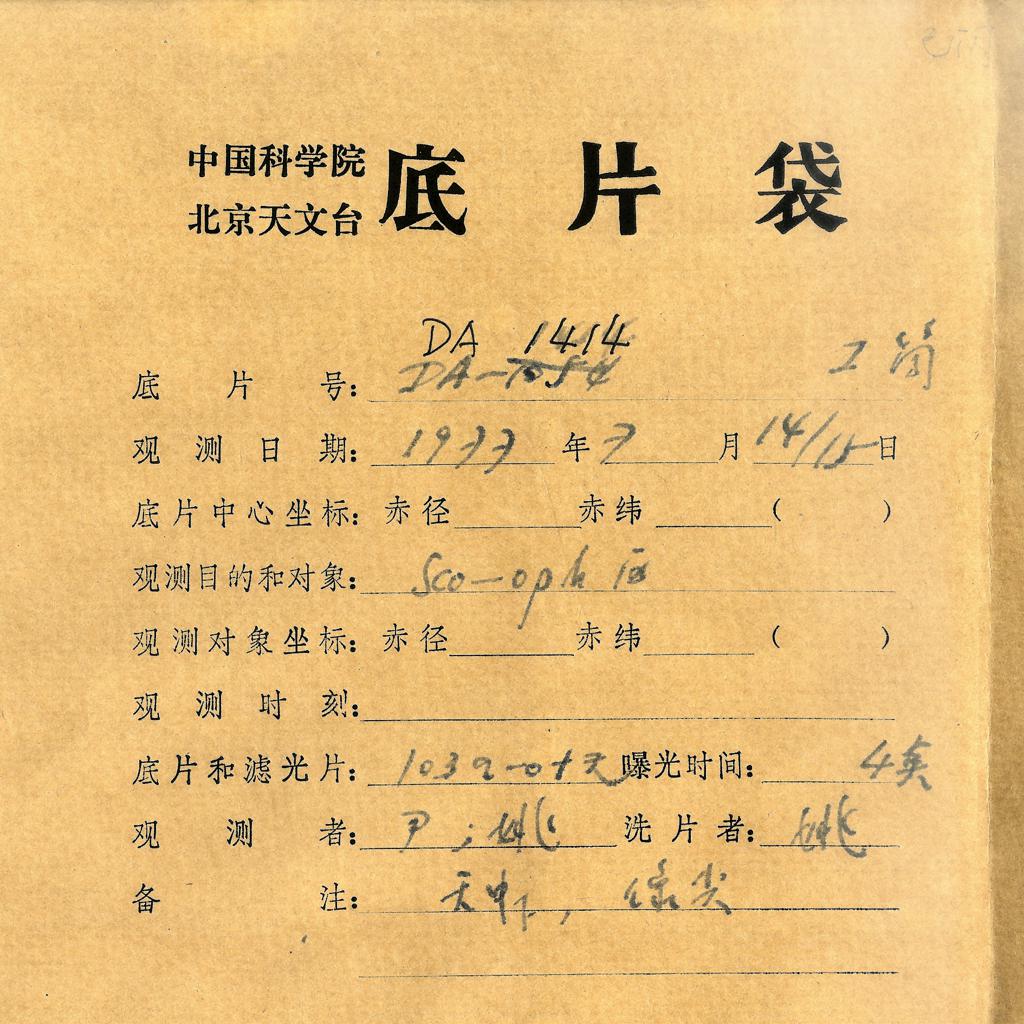 中国科学院
北京天文台 底片袋
DA 1414
底片号: DA-1054 工
观测日期: 1977年7月14/15日
底片中心坐标: 赤径 赤纬 ( )
观测目的和对象: Sco-oph 区
观测对象坐标: 赤径 赤纬 ( )
观测时刻:
底片和滤光片: 103a-O+无 曝光时间: 4
观测者: 尹; 姚 洗片者: 姚
备注: 天